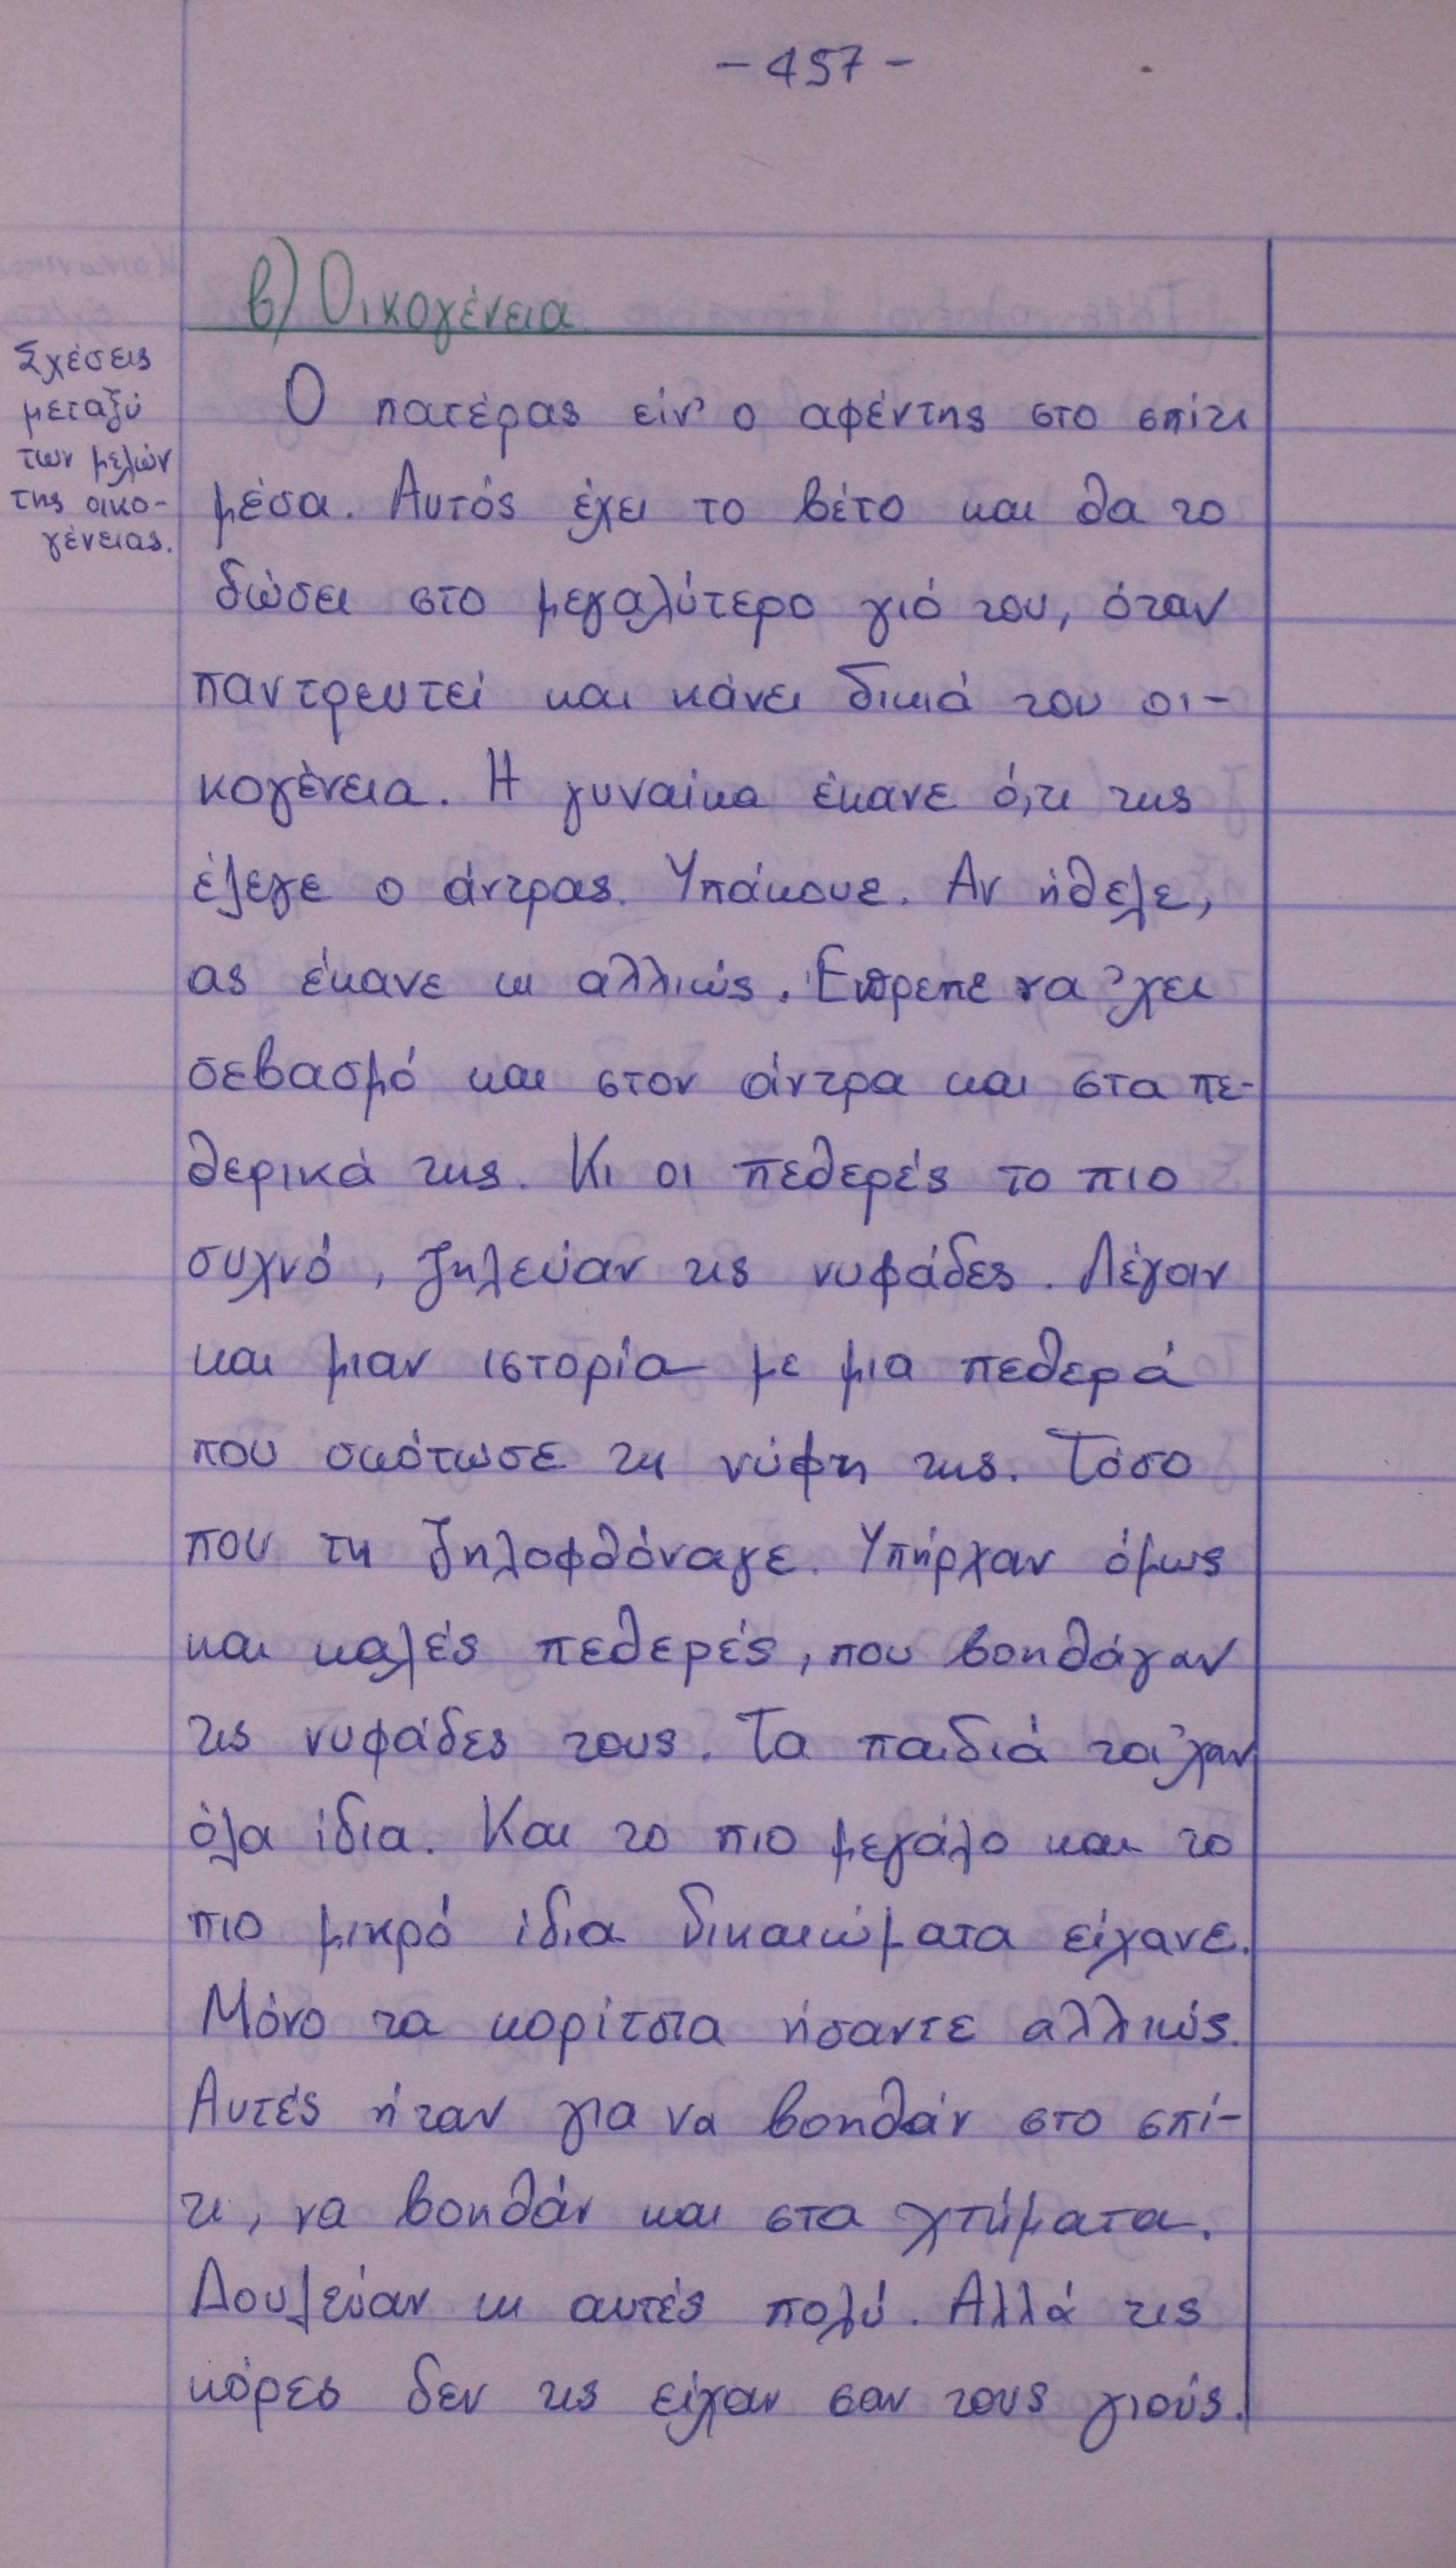 - 457 -
β) Οικογένεια
Σχέσεις
μεταξύ
των μελών
της οικο-
γένειας.
Ο πατέρας είν' ο αφέντης στο σπίτι
μέσα. Αυτός έχει το βέτο και θα το
δώσει στο μεγαλύτερο γιό του, όταν
παντρευτεί και κάνει δικιά του οι-
κογένεια. Η γυναίκα έκανε ό,τι της
έλεγε ο άντρας. Υπάκουε. Αν ήθελε,
ας έκανε κι αλλιώς. Έπρεπε να 'χει
σεβασμό και στον άντρα και στα πε-
θερικά της. Κι οι πεθερές το πιο
συχνό, ζηλεύαν τις νυφάδες. Λέγαν
και μιαν ιστορία με μια πεθερά
που σκότωσε τη νύφη της. Τόσο
που τη ζηλοφθόναγε. Υπήρχαν όμως
και καλές πεθερές, που βοηθάγαν
τις νυφάδες τους. Τα παιδιά τα'χαν
όλα ίδια. Και το πιο μεγάλο και το
πιο μικρό ίδια δικαιώματα είχανε.
Μόνο τα κορίτσια ήσαντε αλλιώς.
Αυτές ήταν για να βοηθάν στο σπί-
τι, να βοηθάν και στα χτήματα.
Δουλεύαν κι αυτές πολύ. Αλλά τις
κόρες δεν τις είχαν σαν τους γιούς.